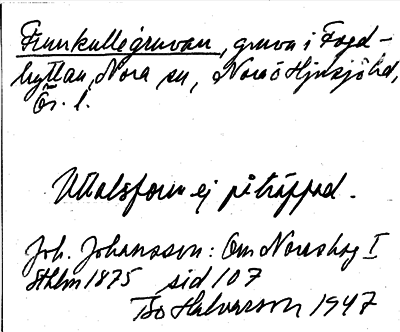 Frunkullegruvan, gruva i Fogd-
hyttan, Nora sn, Nora o Hjulsjö hd,
Ör. l.
Uttalsform ej påträffad.
Joh. Johansson: Om Noraskog I
Sthlm 1875 sid 107
Bo Halvarson 1947